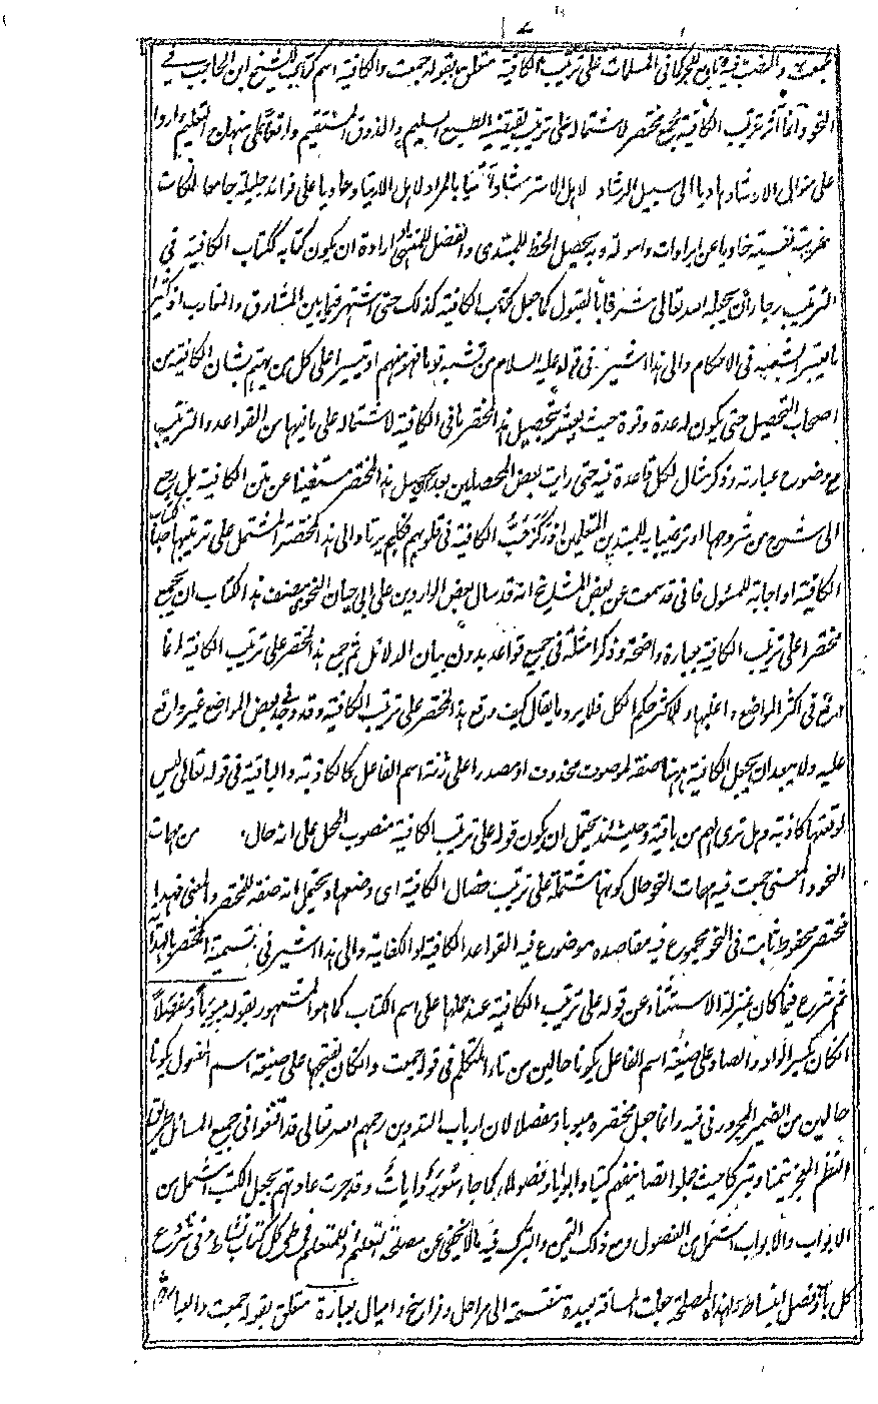 جمعت والمضت فيه على ترتيب الكافية متعلق بقوله جمعت والكافية اسم كتاب الشيخ ابن الحاجب في
النحو وانما آثر ترتيب الكافية بجمع مختصر لاشتماله على ترتيب يقتضيه الطبع السليم والذوق المستقيم واقعا على منهاج التعليم واردا
على منوال الارشاد هاديا الى سبيل الرشاد لاهل الاسترشاد آتيا بالمراد لاهل الارتياد حاويا على فرائد جليلة جامعا لنكات
غريبة نفيسة خاويا عن ايرادات واسولة وبه يحصل الحظ للمبتدى والفضل للمنتهى او ارادة ان يكون كتابه ككتاب الكافية في
الترتيب رجاء ان يجعله الله تعالى مشرفا بالقبول كما جعل كتاب الكافية كذلك حتى اشتهر فيما بين المشارق والمغارب اذ كثيرا
ما يعتبر الشبه في الاحكام والى هذا اشير في قوله عليه السلام من تشبه بقوم فهو منهم او تيسيرا على كل من يهتم بشان الكافية من
اصحاب التحصيل حتى يكون له عدة وقوة حيث يعتبر بتحصيل هذا المختصر ما في الكافية لاشتماله على ما فيها من القواعد والترتيب
مع وضوح عبارته وذكر مثال لكل قاعدة فيه حتى رايت بعض المحصلين بعد تحصيل هذا المختصر مستغنيا عن متن الكافية بل يرجع
الى شرح من شروحها او ترغيبا للمبتدين المتعلمين اذ ركز حب الكافية في قلوبهم فكلهم يرتاد الى هذا المختصر المشتمل على ترتيبها حبا لكتاب
الكافية او اجابة للمسئول فانى قد سمعت عن بعض المشايخ انه قد سال بعض الواردين على ابى حيان النحوى مصنف هذا الكتاب ان يجمع
مختصرا على ترتيب الكافية بعبارة واضحة وذكر امثلة في جميع قواعد بدون بيان الدلائل ثم جمع هذا المختصر على ترتيب الكافية انما
وقع في اكثر المواضع واغلبها وللاكثر حكم الكل فلا يرد ما يقال كيف وقع هذا المختصر على ترتيب الكافية وقد وجد في بعض المواضع غير واقع
عليه ولا يبعد ان يجعل الكافية ههنا صفة لموصوف محذوف او مصدرا على زنة اسم الفاعل كالكاذبة والباقية في قوله تعالى ليس
لوقعتها كاذبة وهل ترى لهم من باقية وحينئذ يحتمل ان يكون قوله على ترتيب الكافية منصوب المحل على انه حال من مهمات
النحو والمعنى جمعت فيه مهمات النحو حال كونها مشتملة على ترتيب خصال الكافية اى وضعها ويحتمل انه صفة للمختصر والمعنى فهذا
مختصر محفوظ ثابت في النحو مجموع فيه مقاصده موضوع فيه القواعد الكافية او الكفاية والى هذا اشير في تسمية المختصر بالهداية
ثم شرع فيما كان بمنزلة الاستثناء عن قوله على ترتيب الكافية عند حملها على اسم الكتاب كما هو المشهور بقوله مبوبا ومفصلا
ان كان بكسر الواو والصاد على صيغة اسم الفاعل يكونا حالين من تاء المتكلم في قوله جمعت وان كان بفتحها على صيغة اسم المفعول يكونا
حالين من الضمير المجرور في فيه وانما جعل مختصره مبوبا ومفصلا لان ارباب التدوين رحمهم الله تعالى قد اتفقوا في جميع المسائل طريق
النظم المعجز تيمنا وتبركا حيث جعلوا تصانيفهم كتبا وابوابا وفصولا كما جاء سور وآيات وقد جرت عادتهم بجعل الكتب اشمل من
الابواب والابواب اشمل من الفصول ومع ذلك التيمن والتبرك فيه ما لا يخفى عن مصلحة التعليم اذ للمتعلم في طى كل كتاب نشاط وفى شرع
كل باب وفصل انبساط ولهذه المصلحة جعلت المسافة البعيدة منقسمة الى مراحل وفراسخ واميال بعبارة متعلق بقوله جمعت والعبارة